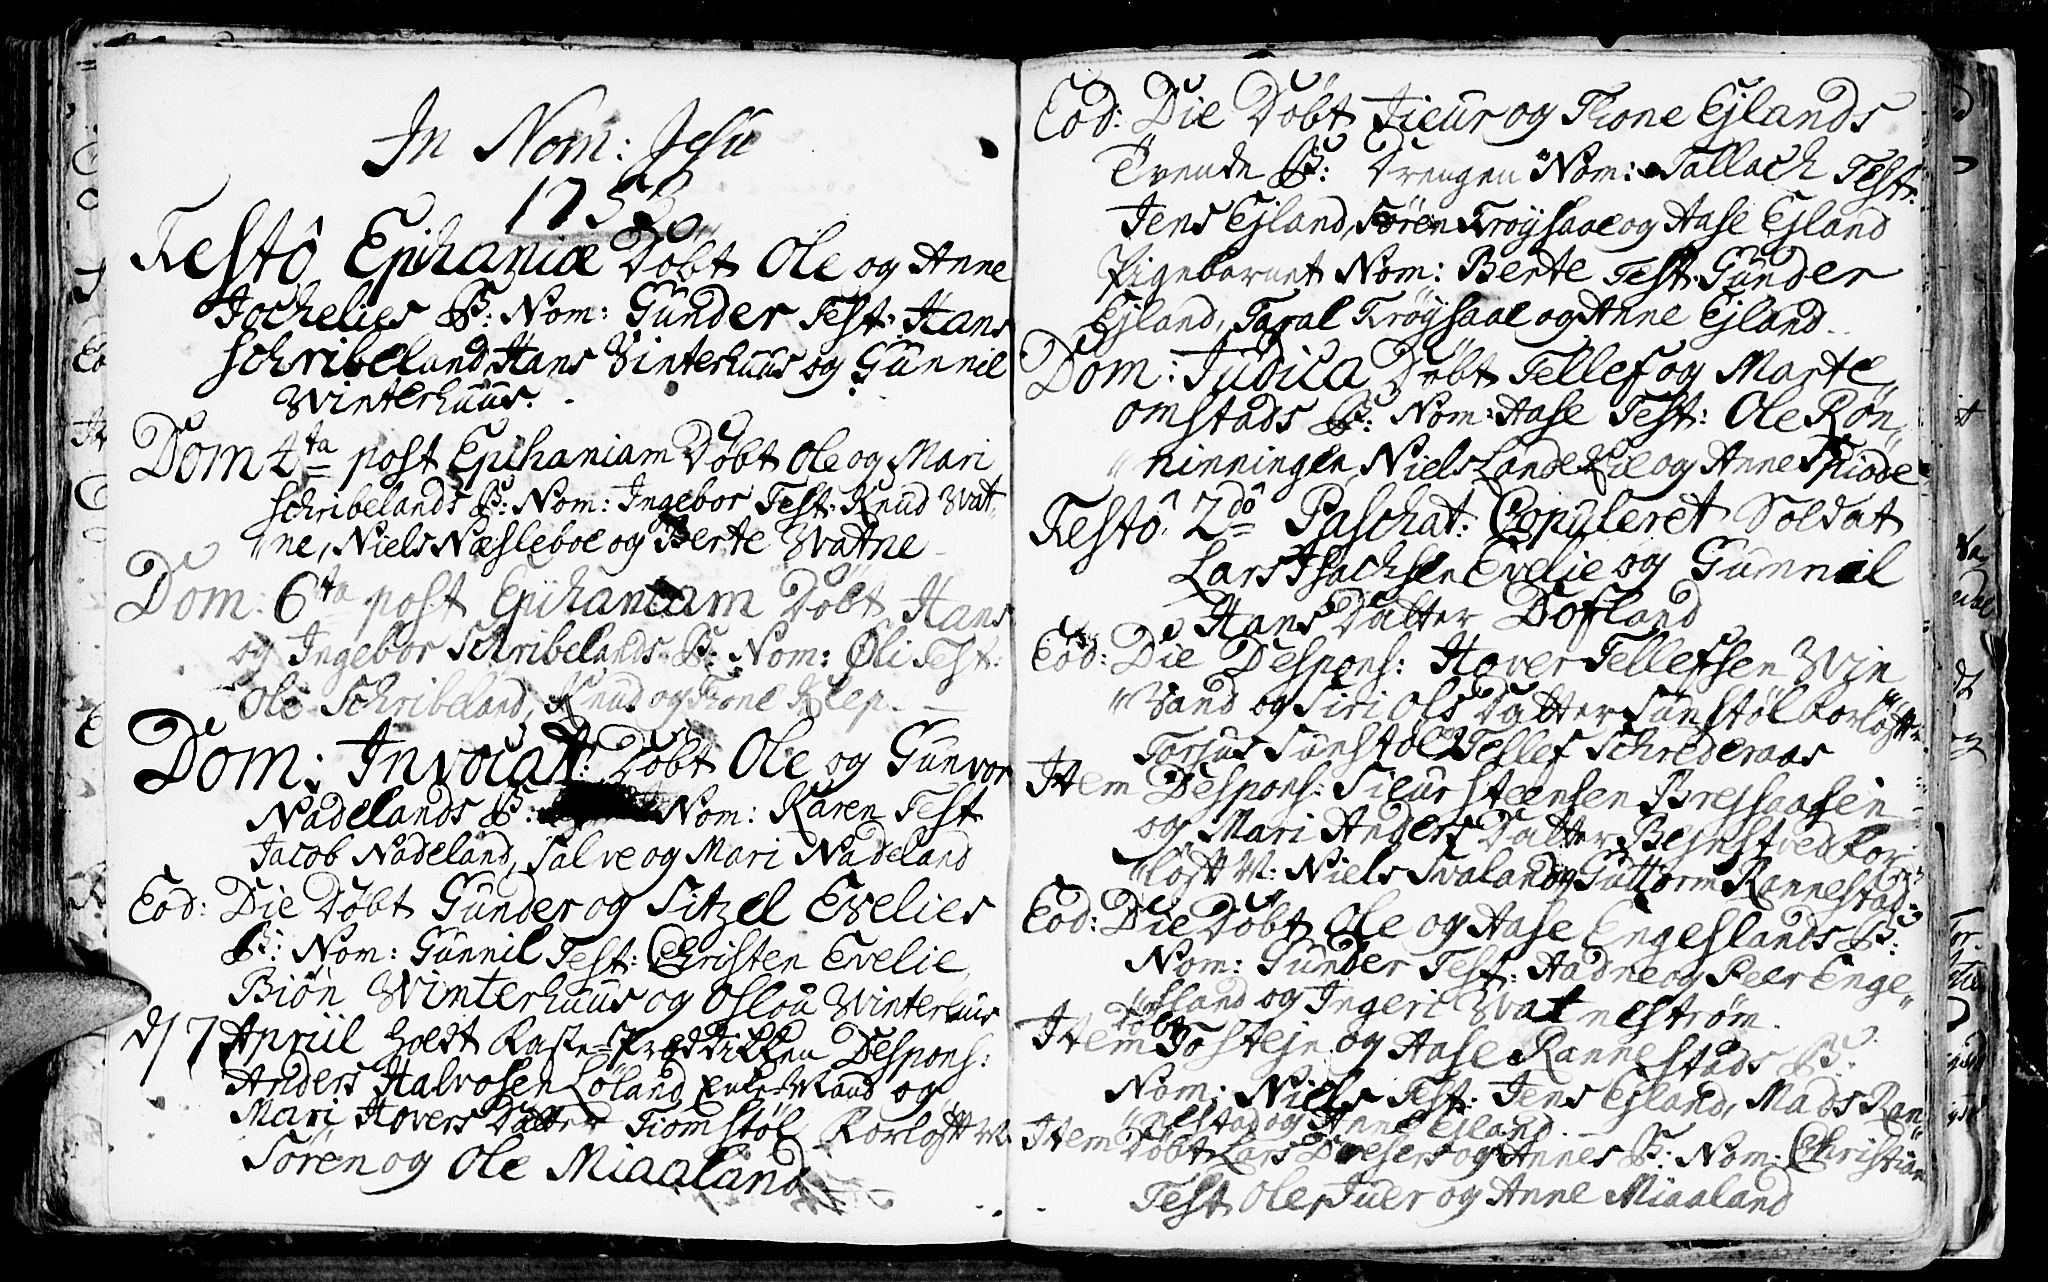 In Nom: Jesu
1753
Festô Epihaniæ Døbt Ole og Anne
Jochelies B: Nom: Gunder Test: Hans
Schribeland, Hans Vinterhuus og Gunnil
Winterhuus.
Dom 4ta post Epihaniam Døbt Ole og Mari
Schribelands B: Nom: Ingebor Test: Knud Wat„
„ne, Niels Næsleboe og Berte Watne
Dom: 6ta post Epihaniam Døbt Hans
og Ingebor Schribelands B: Nom: Øli Test:
Ole Schribeland, Knud og Tone Klep.
Dom: Invocat: Døbt Ole og Gunvor
Nadelands B: Nom: Karen Test
Jacob Nadeland, Salve og Mari Nadeland
Eod: Die Døbt Gunder og Sitzel Evelies
B: Nom: Gunnil Test: Christen Evelie,
Biøn Winterhuus og Oslou Winterhuus
d/7 Apriil holdt Faste-Præddikken Despons:
Anders Halvosen Løland Enke-Mand og
Mari Hovers Datter Tiomstøl Forlost M.
Søren og Ole Miaaland
Eod: Die Døbt Sieur og Tone Ejlands
Tvende B: Drengen Nom: Tallach Test:
Jens Ejland, Søren Frøysaae og Aase Ejland
Pigebarnet Nom: Berte Test: Gunder
Ejland, Taral Frøysaae og Anne Ejland.
Dom: Judica Døbt Tellef og Marte
Omstads B: Nom: Aase Test: Ole Røn„
„ninningen, Niels Lande Lie og Anne Spiode
Festô 2dô Paschat: Copuleret Soldat
Lars Isachsen Evelie og Gumnil
Hans Datter Dofland
Eod: Die Despons: Hover Tellefsen Win
„Vand og Siri Ols Datter Sunstøl Forløst M.
Torjus Sunstøl og Tellef Schrederaas
Item Despons: Sieur Steensen Brejsaasen
og Mari Anders Datter Bejnestved For„
„løst M: Niels Svaland og Guttorm Rannestad
Eod: Die Døbt Ole og Aase Engeslands B:
Nom: Gunder Test: Aadne og Peer Enge„
„sland og Ingeri Watnestrøm.
Item Døbt Tostejn og Aase Rannestads B:
Nom: Niels Test: Jens Ejland, Mads Ran„
„nestad og Anne Ejland.
Item Døbt Lars Dresers og Annes B: Nom: Christian
Test Ole, Juer og Anne Miaaland